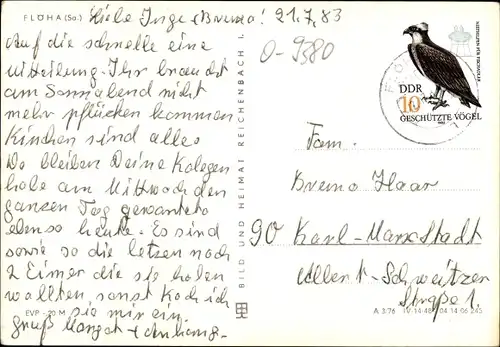 FLÖHA (Sa.)
Liebe Inge + Bruno! 21.7.83
Auf die schnelle eine
Mitteilung. Ihr braucht
am Sonnabend nicht
mehr pflücken kommen
Kirschen sind alle.
Wo bleiben Deine Kolegen
habe am Mittwoch den
ganzen Tag gewartet
ebenso heute. Es sind
sowie so die letzen noch
2 Eimer die sie holen
wollten, sonst koch ich
sie mir ein.
Gruß Margot +
EVP -20 M
BILD UND HEIMAT REICHENBACH I.
O-9380
DDR
10
GESCHÜTZTE VÖGEL
Fam.
Bruno Haar
90 Karl-Marx-Stadt
Albert-Schweitzer
Straße 1.
A 3/76 IV-14-48 04 14 06 245